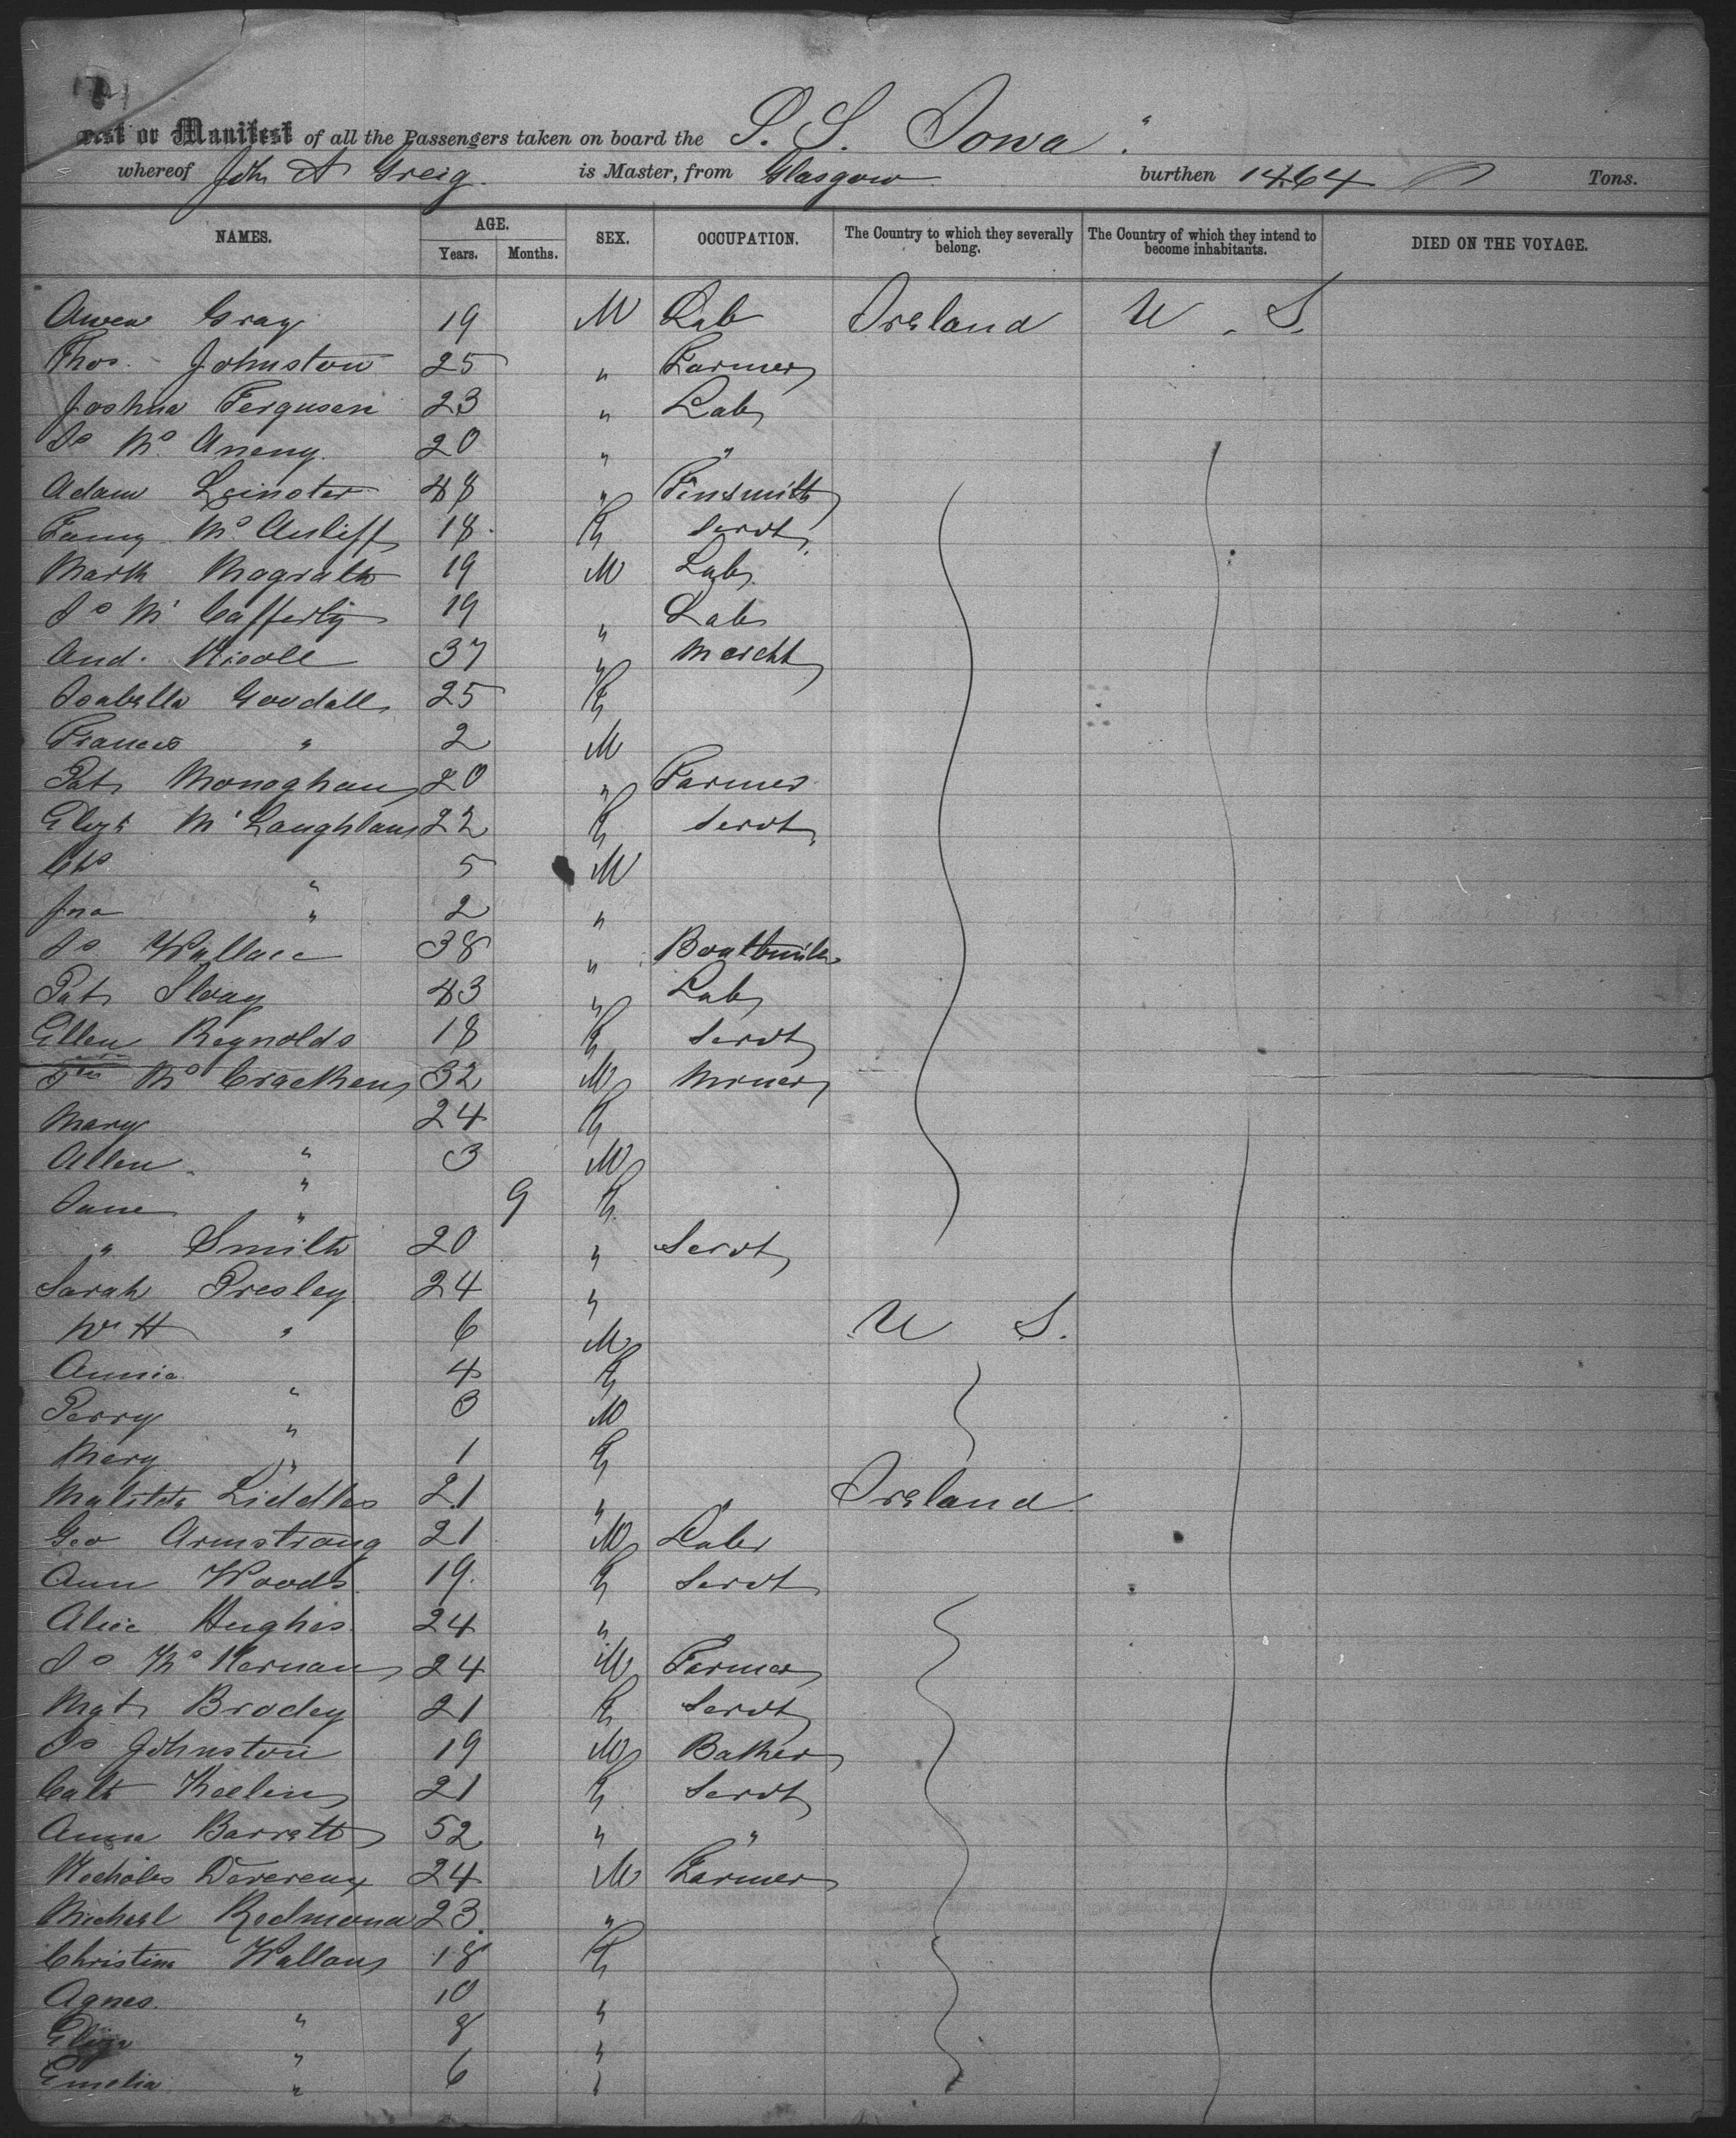 or Manifest of all the Passengers taken on board the S. S. Iowa "
whereof John A Greig is Master, from Glasgow burthen 1464 Tons.
NAMES. AGE. Years. Months. SEX. OCCUPATION. The Country to which they severally belong. The Country of which they intend to become inhabitants. DIED ON THE VOYAGE.
Owen Gray 19 M Lab Ireland U. S.
Thos. Johnston 25 " Farmer
Joshua Ferguson 23 " Lab
Js Mc Aneny 20 " "
Adam Leinster 48 " Tinsmith
Fanny Mc Auliff 18 F Servt
Mark Magrath 19 M Lab
Js Mc Cafferty 19 " Lab
And. Nicoll 37 " Mercht
Isabella Goodall 25 F
Francis " 2 M
Pat Monoghan 20 " Farmer
Elizth McLaughlan 22 F Servt
Chs " 5 M
Jno " 2 "
Js Wallace 38 " Boatbuilr
Pat Sloay 43 " Lab
Ellen Reynolds 18 F Servt
Mc Cracken 32 M Miner
Mary " 24 F
Allen " 3 M
Jane " 9 F
" Smith 20 " Servt
Sarah Presley 24 "
Wm H " 6 M U S.
Annie " 4 F
Perry " 3 M
Mary " 1 F
Matilda Liddles 21 " " Ireland
Geo Armstrong 21 M Labr
Ann Woods 19 F Servt
Alice Hughes 24 " "
Js Mc Kernan 24 M Farmer
Mgt Brodey 21 F Servt
Js Johnston 19 M Baker
Cath Keelin 21 F Servt
Anna Barratt 52 " "
Nicholas Devereux 24 M Farmer
Michael Redmond 23 "
Christina Wallan 18 F
Agnes " 10 "
Eliza " 8 "
Emelia " 6 "